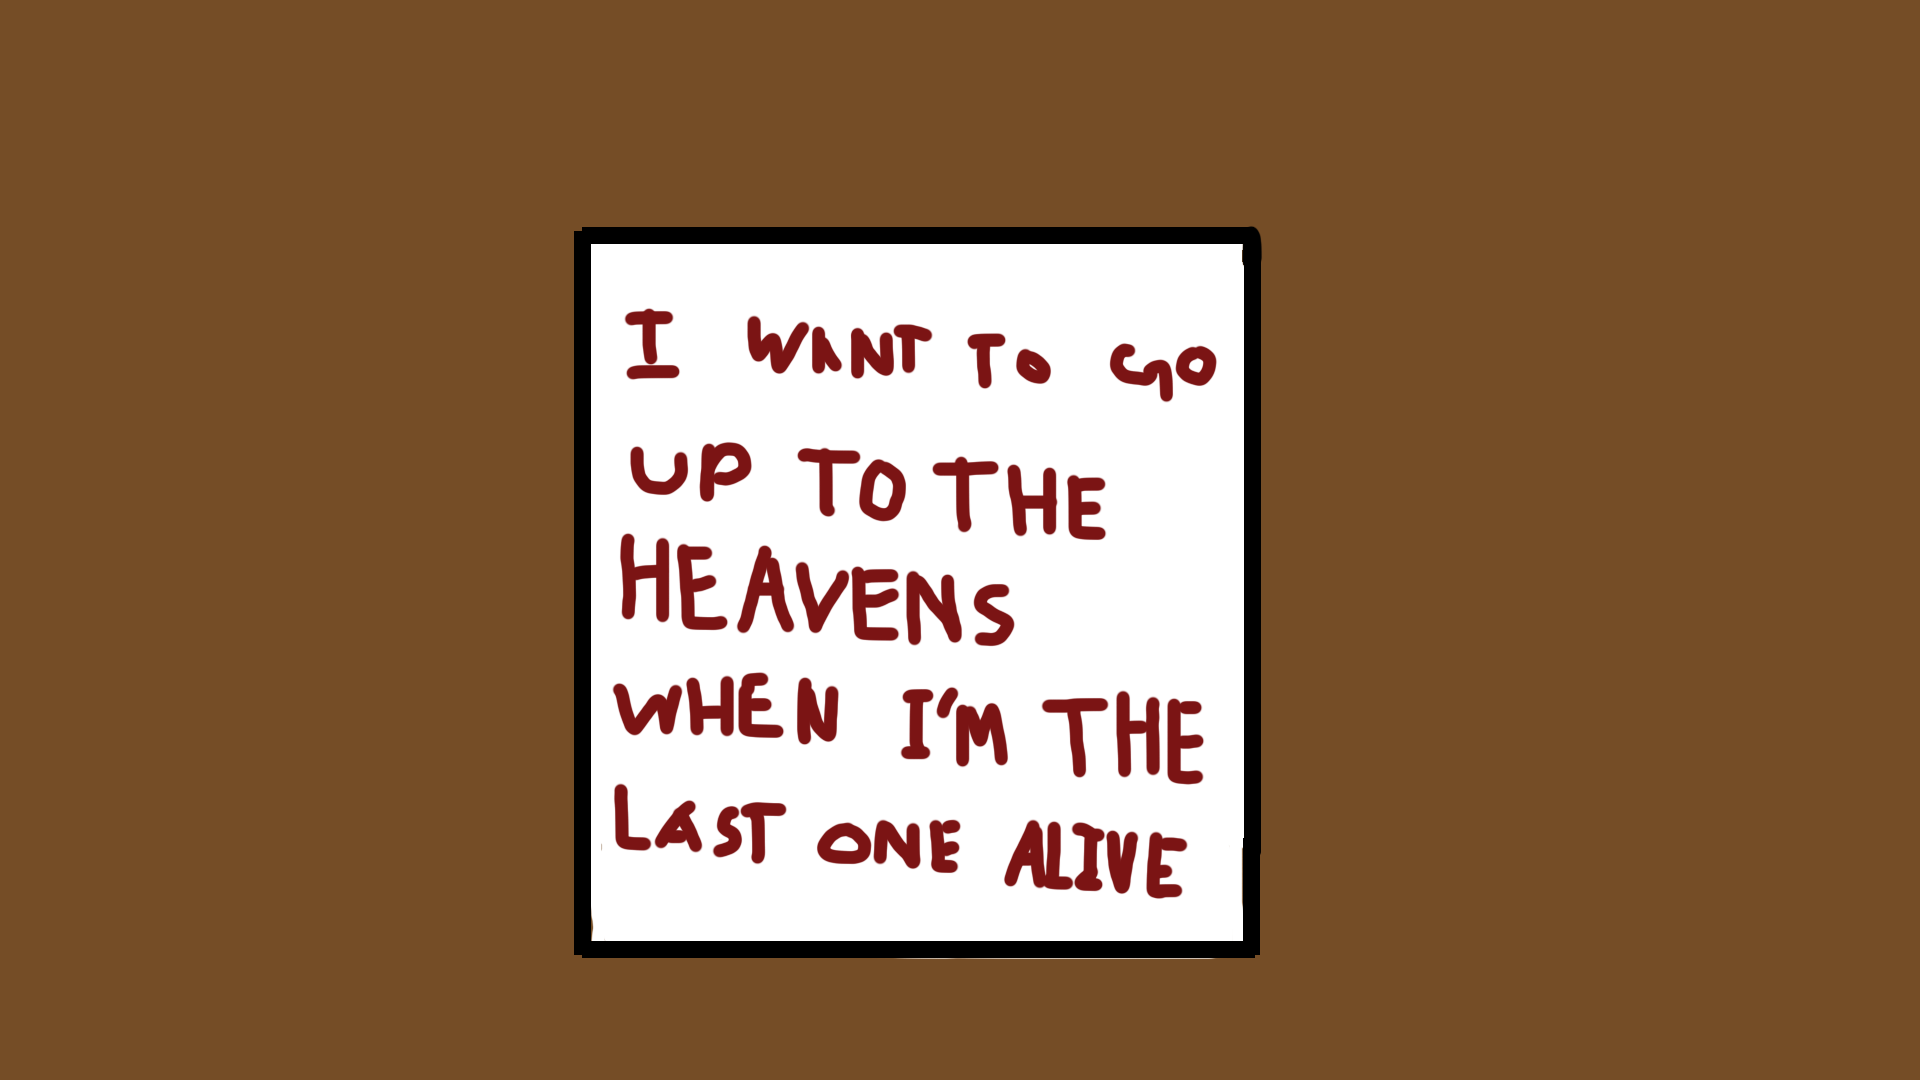 I WANT TO GO
UP TO THE
HEAVENS
WHEN I'M THE
LAST ONE ALIVE